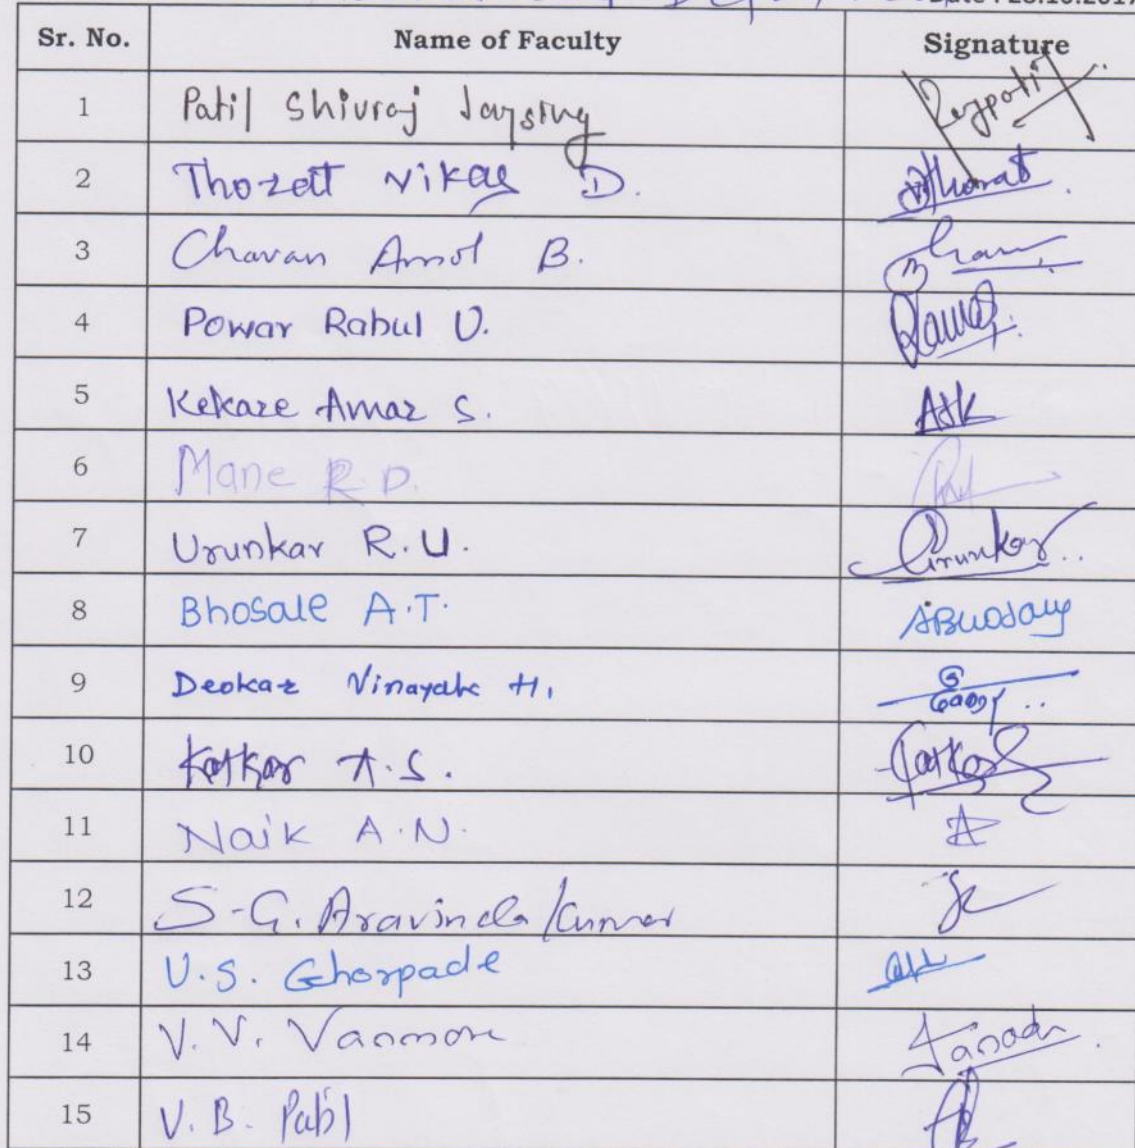 Date : 28.10.2017
Sr. No. Name of Faculty Signature
1 Patil Shivraj Jaysing
2 Thorat Vikas D.
3 Chavan Amol B.
4 Powar Rahul U.
5 Kekare Amar S. ASK
6 Mane R.D.
7 Urunkar R.U. Urunkar
8 Bhosale A.T. ABhosale
9 Deokar Vinayak H.
10 Katkar A.S. Katkar
11 Naik A.N.
12 S.G. Aravinda Kumar
13 U.S. Ghorpade
14 V.V. Vanmore
15 V.B. Patil